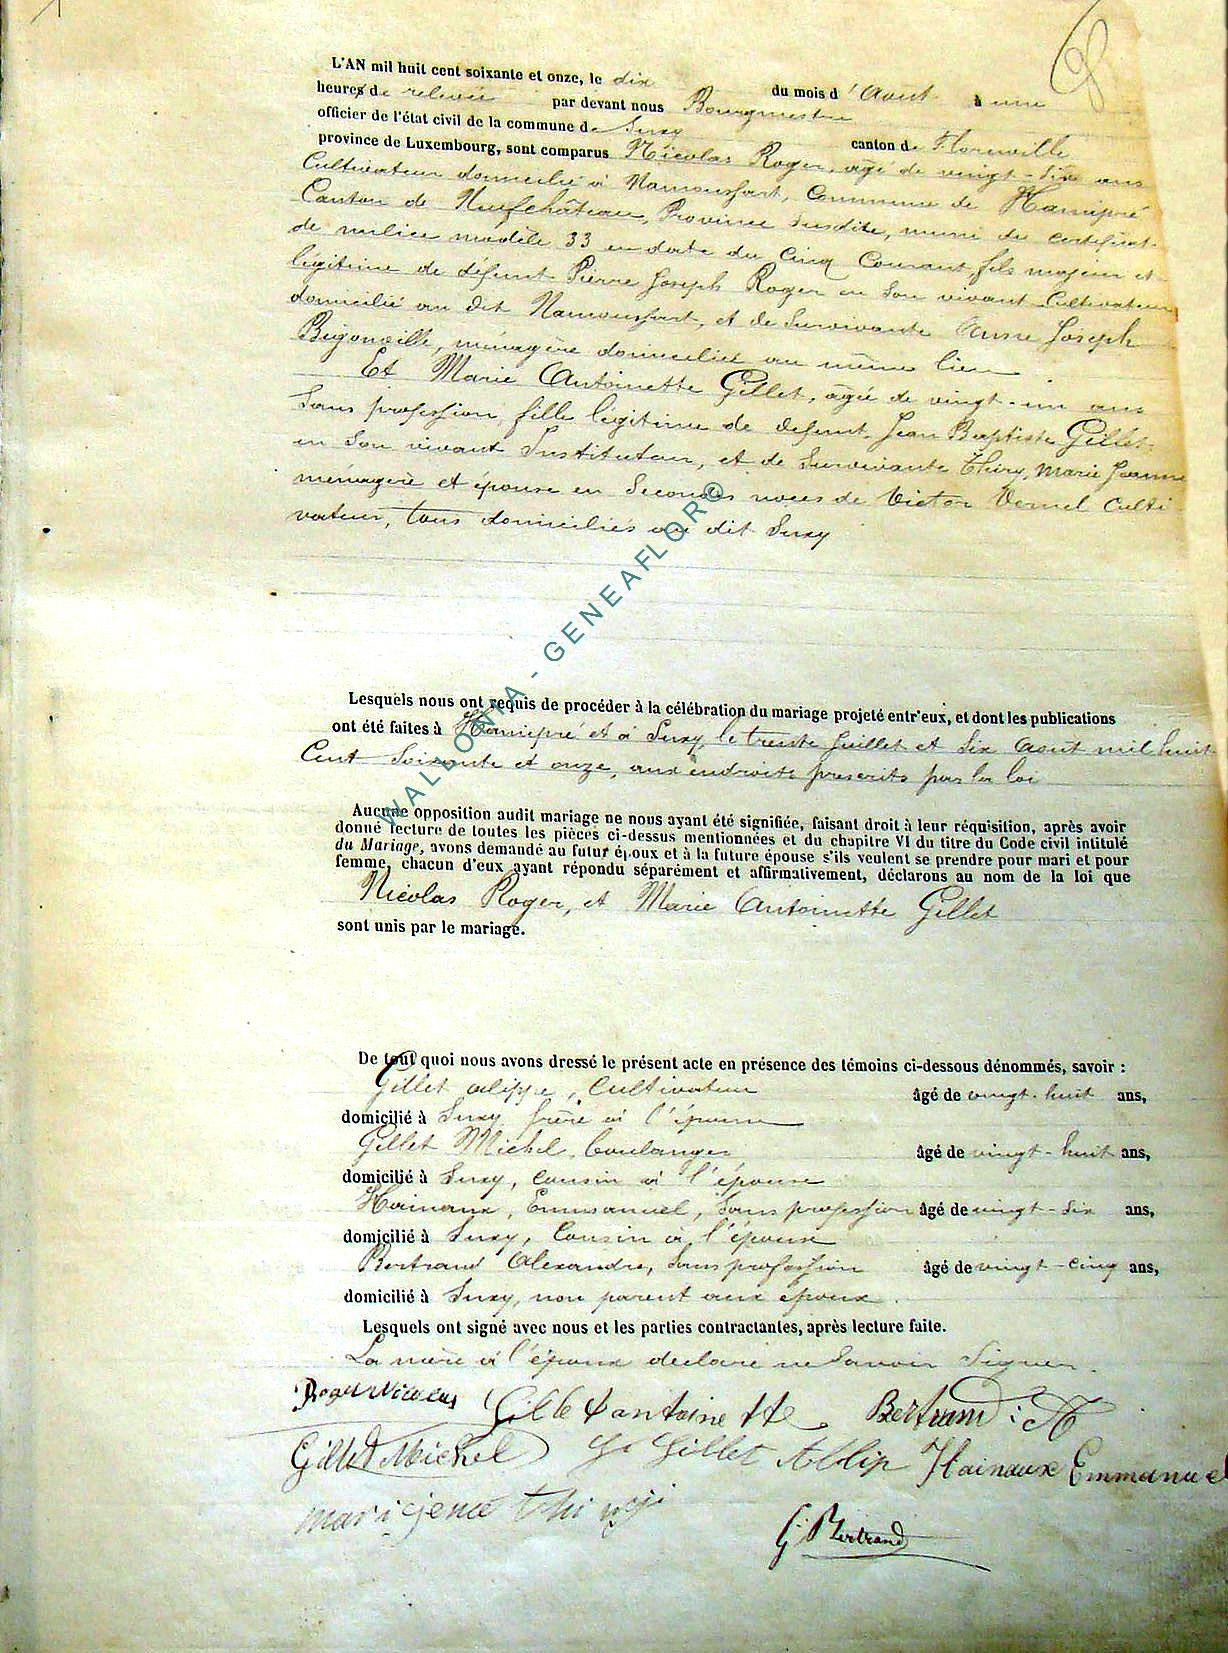 L'AN mil huit cent soixante et onze, le dix du mois d'Aout à une
heures de relevée par devant nous Bourgmestre
officier de l'état civil de la commune de Suxy canton de Florenville
province de Luxembourg, sont comparus Nicolas Roger, agé de vingt-six ans
Cultivateur domicilié à Namousfart, Commune de Hamipré
Canton de Neufchâteau, Province susdite, muni du certificat
de milice modèle 33 en date du Cinq Courant, fils majeur et
légitime de défunt Pierre Joseph Roger en son vivant Cultivateur
domicilié au dit Namousfart, et de Survivante Anne Joseph
Bigonville, ménagère domiciliée au même lieu
Et Marie Antoinette Gillet, agée de vingt-un ans
Sans profession, fille légitime de defunt Jean Baptiste Gillet
en Son vivant Instituteur, et de Survivante Thiry, Marie Jeanne
ménagère et épouse en Secondes noces de Victor Vernel Culti
vateur, tous domiciliés au dit Suxy
Lesquels nous ont requis de procéder à la célébration du mariage projeté entr'eux, et dont les publications
ont été faites à Hamipré et à Suxy, le trente Juillet et Six Aout mil huit
Cent Soixante et onze, aux endroits prescrits par la loi
Aucune opposition audit mariage ne nous ayant été signifiée, faisant droit à leur réquisition, après avoir
donné lecture de toutes les pièces ci-dessus mentionnées et du chapitre VI du titre du Code civil intitulé
du Mariage, avons demandé au futur époux et à la future épouse s'ils veulent se prendre pour mari et pour
femme, chacun d'eux ayant répondu séparément et affirmativement, déclarons au nom de la loi que
Nicolas Roger, et Marie Antoinette Gillet
sont unis par le mariage.
De tout quoi nous avons dressé le présent acte en présence des témoins ci-dessous dénommés, savoir :
Gillet alippe, Cultivateur âgé de vingt-huit ans,
domicilié à Suxy frère à l'épouse
Gillet Michel, boulanger âgé de vingt-huit ans,
domicilié à Suxy, cousin à l'épouse
Hainaux, Emmanuel, Sans profession âgé de vingt-six ans,
domicilié à Suxy, Cousin à l'épouse
Bertrand Alexandre, Sans profession âgé de vingt-cinq ans,
domicilié à Suxy, non parent aux epoux.
Lesquels ont signé avec nous et les parties contractantes, après lecture faite.
La mère à l'époux declare ne Savoir Signer.
Roger Nicolas Gillet antoinette Bertrand A
Gillet Michel Gillet Allip Hainaux Emmanuel
marie jenne thiry
G Bertrand
WALLONIA - GENEAFLOR©